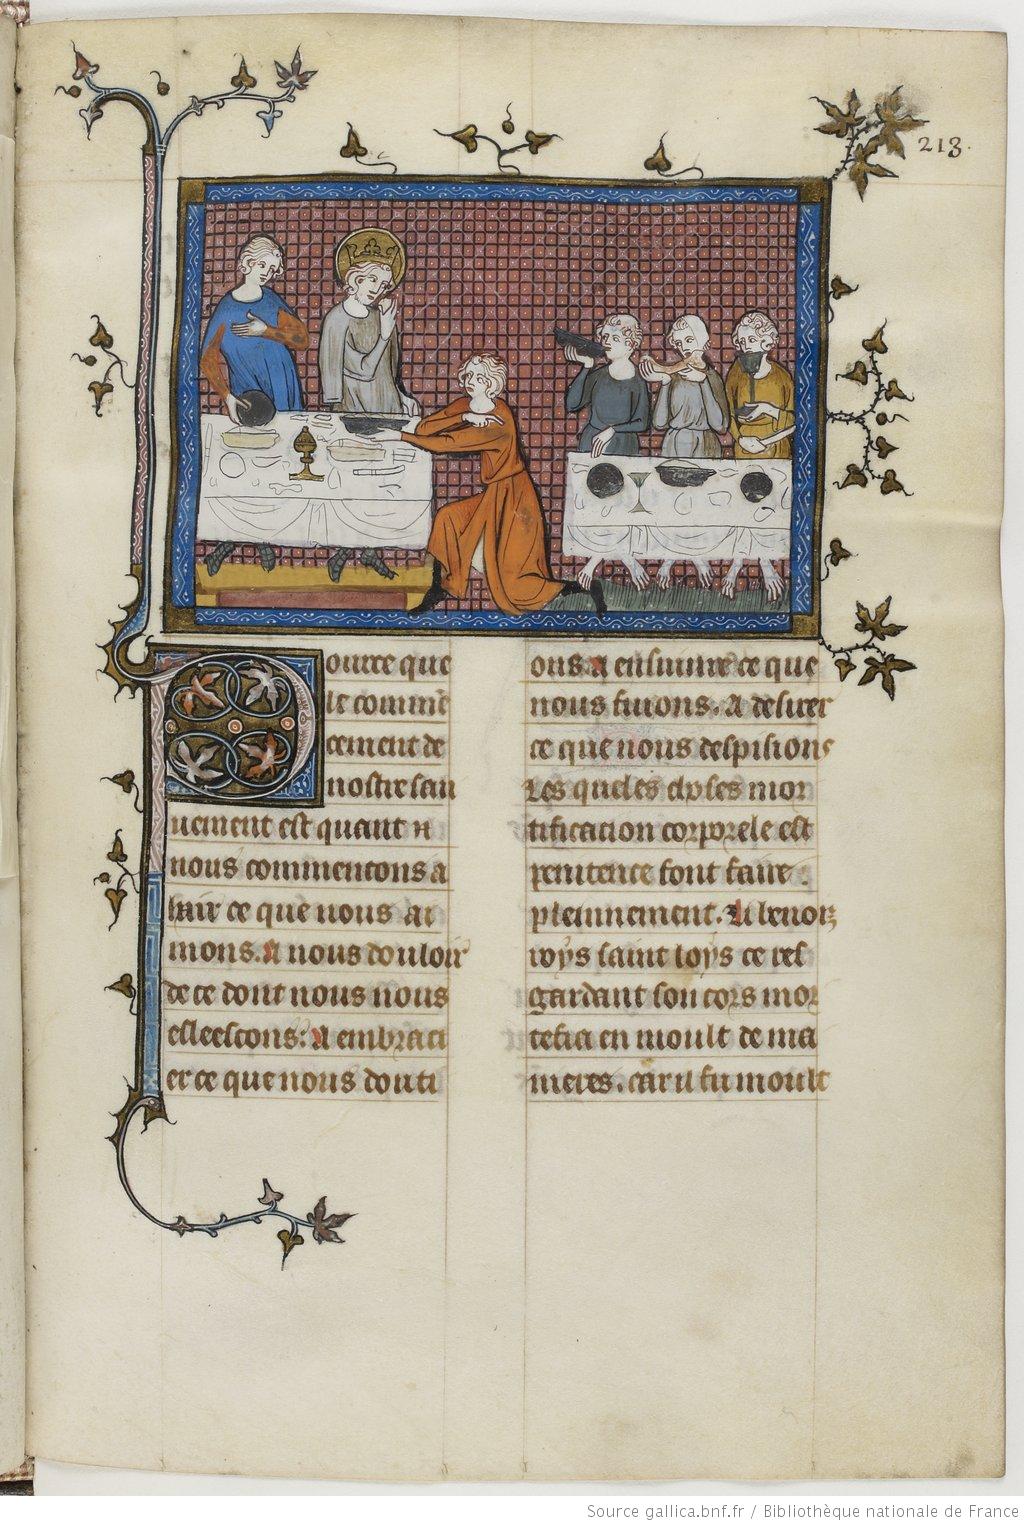 213.
Pource que
le comme
cement de
nostre sau
uement est quant
nous commencons a
hair ce que nous ai
mons. A nous douloir
de ce dont nous nous
esleescons. A embraci
er ce que nous douti
ons A ensuiure ce que
nous fuions. A desirer
ce que nous despisions
Les queles choses mor
tification corporele est
penitence font faire
pleinnement. Li benoiz
roys saint loys ce res
gardant son cors mor
tefia en moult de ma
nieres. car il fu moult
Source gallica.bnf.fr / Bibliothèque nationale de France